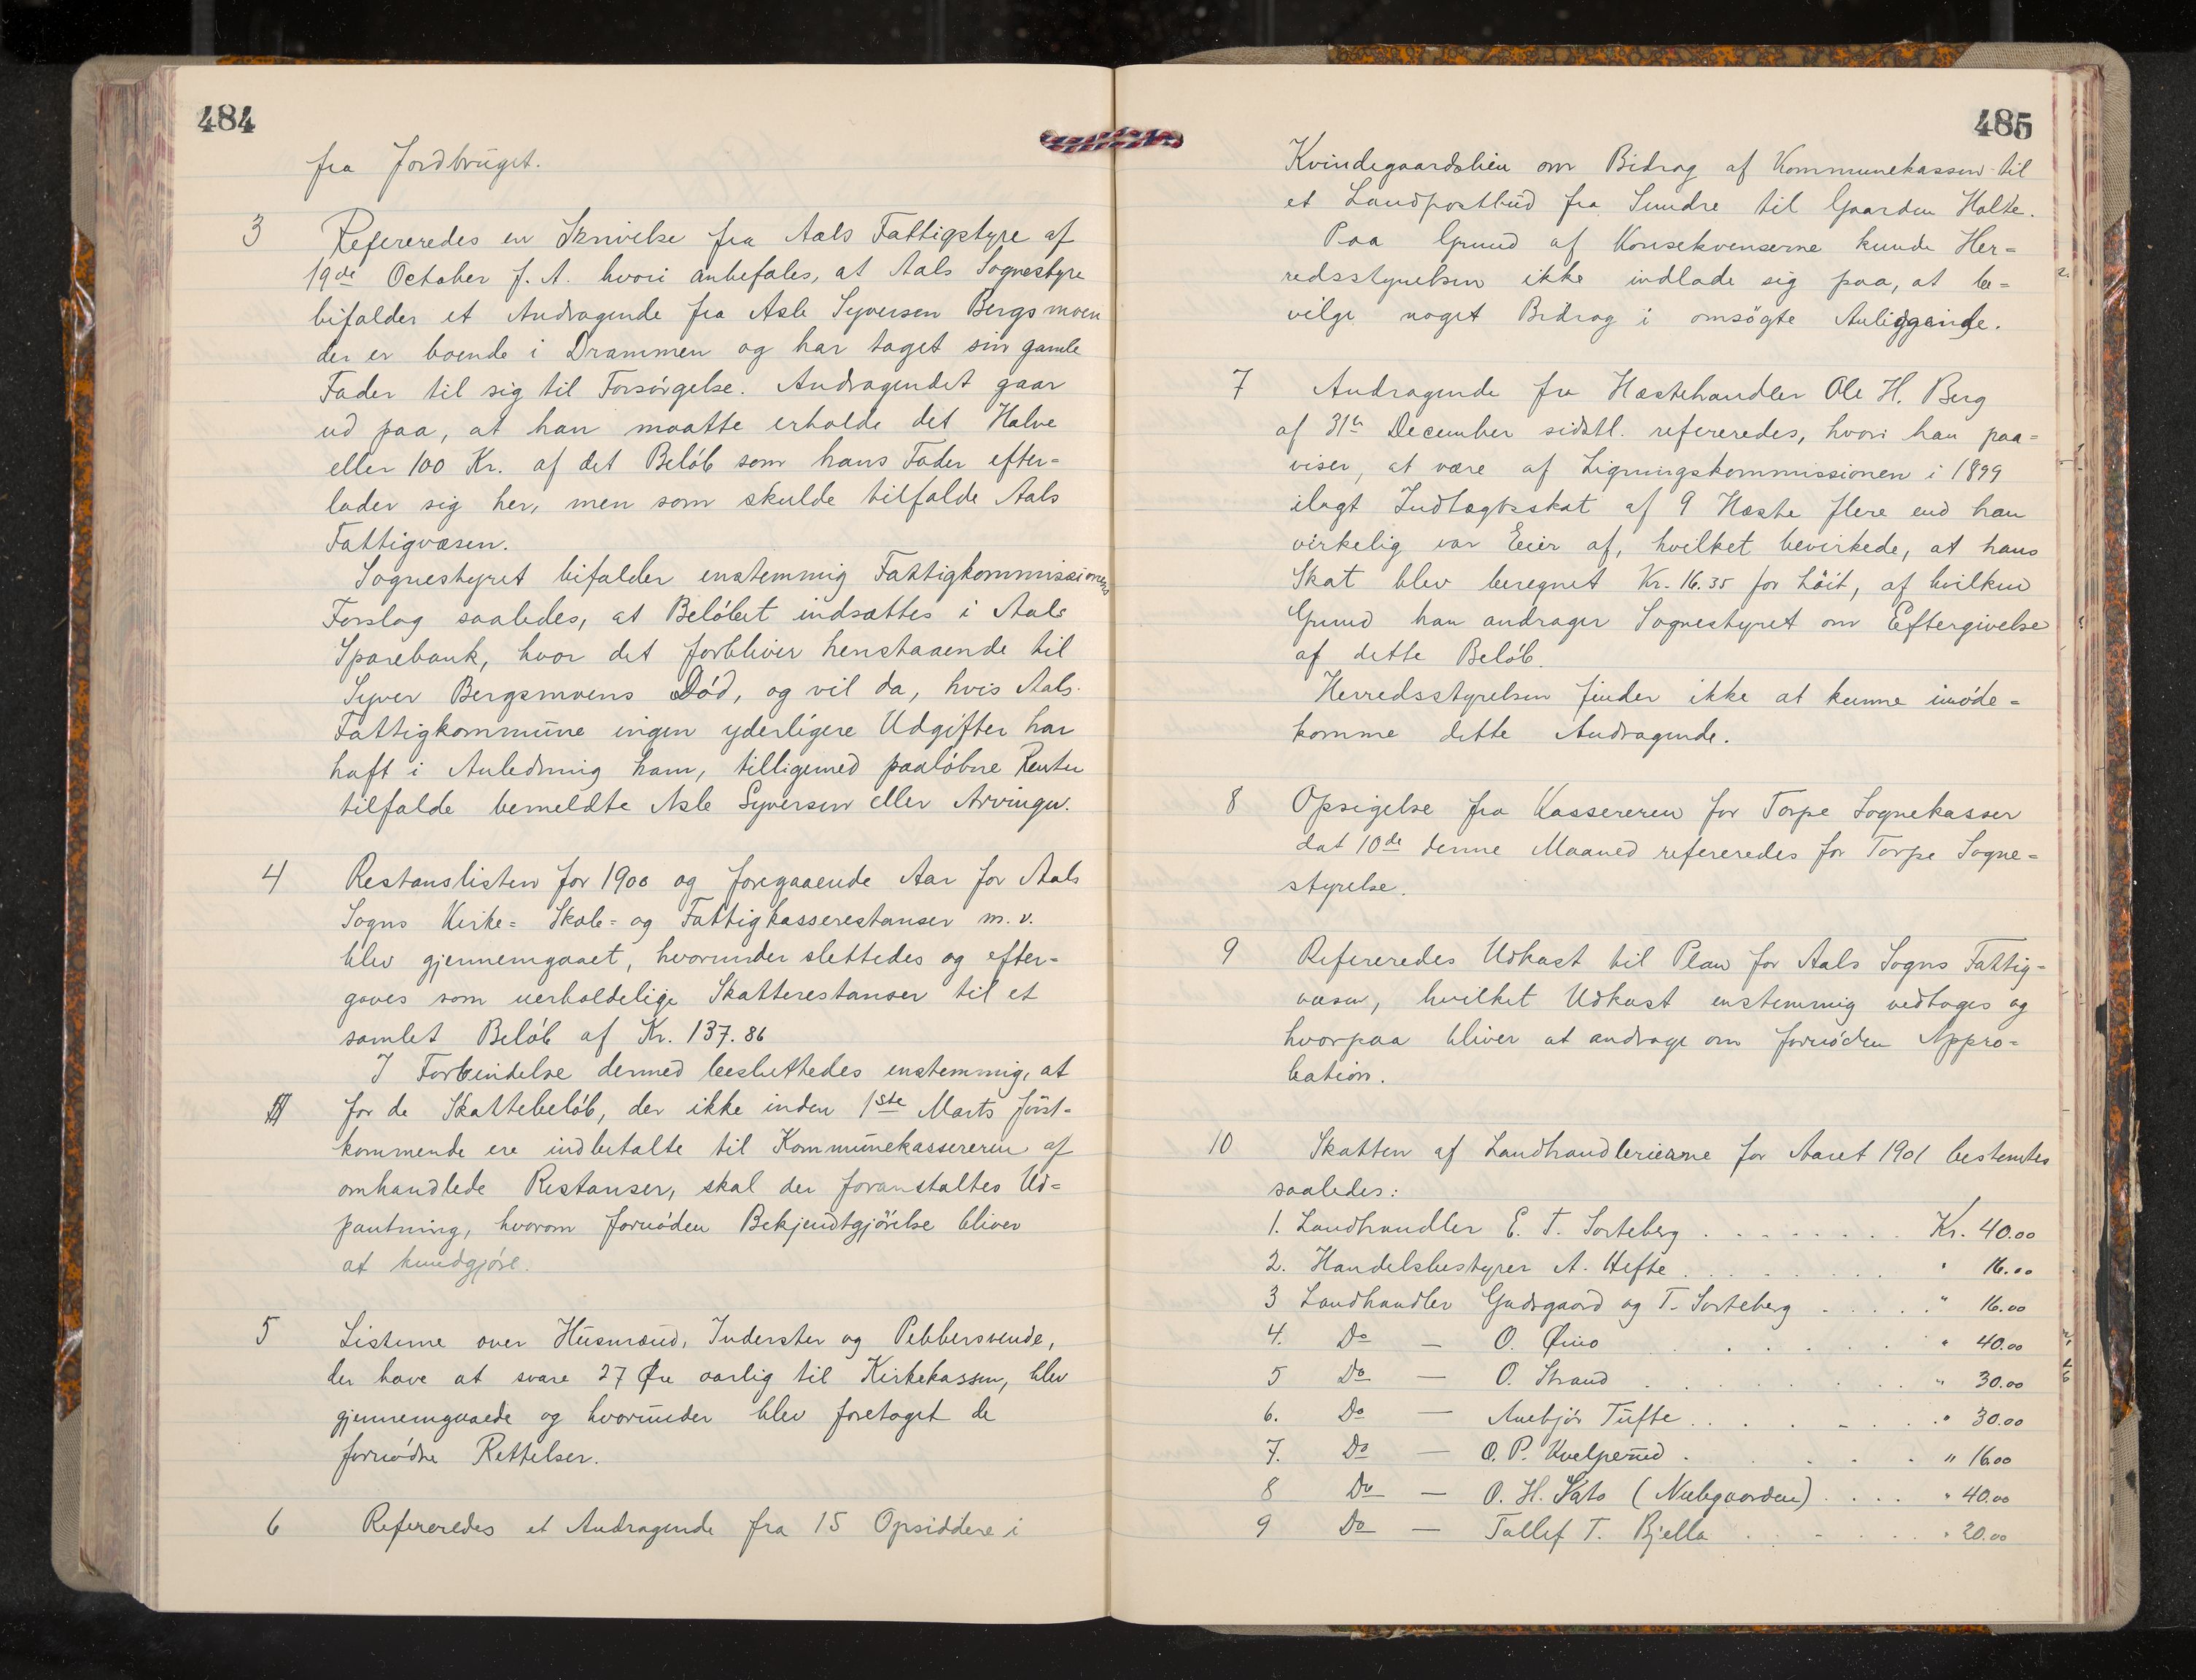 484
fra Jordbruget.
3 Refereredes en Skrivelse fra Aals Fattigstyre af
19de October f. A. hvori anbefales, at Aals Sognestyre
bifalder et Andragende fra Asle Syversen Bergsmoen
der er boende i Drammen og har taget sin gamle
Fader til sig til Forsörgelse. Andragendet gaar
ud paa, at han maatte erholde det Halve
eller 100 Kr. af det Belöb som hans Fader efter=
lader sig her, men som skulde tilfalde Aals
Fattigvæsen.
Sognestyret bifalder enstemmig Fattigkommissionens
Forslag saaledes, at Belöbet indsættes i Aals
Sparebank, hvor det forbliver henstaaende til
Syver Bergsmoens Död, og vil da, hvis Aals
Fattigkommune ingen yderligere Udgifter har
haft i Anledning ham, tilligemed paalöbne Renter
tilfalde bemeldte Asle Syversen eller Arvinger.
4 Restanslisten for 1900 og foregaaende Aar for Aals
Sogns Kirke= Skole= og Fattigkasserestanser m.v.
blev gjennemgaaet, hvorunder slettedes og efter=
gaves som uerholdelige Skatterestanser til et
samlet Belöb af Kr. 137.86
I Forbindelse dermed besluttedes enstemmig, at
for de Skattebelöb, der ikke inden 1ste Marts först=
kommende ere indbetalte til Kommunekassereren af
omhandlede Restanser, skal der foranstaltes Ud=
pantning, hvorom fornöden Bekjendtgjörelse bliver
at kundgjöre.
5 Listerne over Husmænd, Inderster og Pebbersvende,
der have at svare 27 Øre aarlig til Kirkekassen, blev
gjennemgaaede og hvorunder blev foretaget de
fornödne Rettelser.
6 Refereredes et Andragende fra 15 Opsiddere i
485
Kvindegaardslien om Bidrag af Kommunekassen til
et Landpostbud fra Sundre til Gaarden Holte.
Paa Grund af Konsekvenserne kunde Her=
redsstyrelsen ikke indlade sig paa, at be=
vilge noget Bidrag i omsögte Anliggende.
7 Andragende fra Hestehandler Ole H. Berg
af 31te December sidstl. refereredes, hvori han paa=
viser, at være af Ligningskommissionen i 1899
ilagt Indtægtsskat af 9 Heste flere end han
virkelig var Eier af, hvilket bevirkede, at hans
Skat blev beregnet Kr. 16.35 for höit, af hvilken
Grund han andrager Sognestyret om Eftergivelse
af dette Belöb.
Herredsstyrelsen finder ikke at kunne imöde=
komme dette Andragende.
8 Opsigelse fra Kassereren for Torpe Sognekasser
dat 10de denne Maaned refereredes for Torpe Sogne=
styrelse.
9 Refereredes Udkast til Plan for Aals Sogns Fattig=
væsen, hvilket Udkast enstemmig vedtoges og
hvorpaa bliver at andrage om fornöden Appro=
bation.
10 Skatten af Landhandlerierne for Aaret 1901 bestemtes
saaledes:
1. Landhandler E. T. Sorteberg . . . . . . . . Kr. 40.00
2. Handelsbestyrer A. Hefte . . . . . . . . " 16.00
3 Landhandler Gudsgaard og T. Sorteberg . . . . . " 16.00
4. Do — O. Øino . . . . . . " 40.00
5 Do — O. Strand . . . . . . . . " 30.00
6. Do — Anebjör Tufte . . . . . . . " 30.00
7. Do — O. P. Kvelperud . . . . . " 16.00
8 Do — O. H. Sato (Nubgaarden) . . . . " 40.00
9 Do — Tollef T. Bjella . . . . . . " 20.00